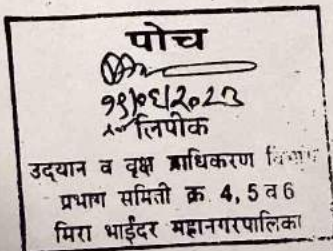 पोच
१९/०६/२०२३
लिपीक
उद्यान व वृक्ष प्राधिकरण विभाग
प्रभाग समिती क्र. 4, 5 व 6
मिरा भाईंदर महानगरपालिका